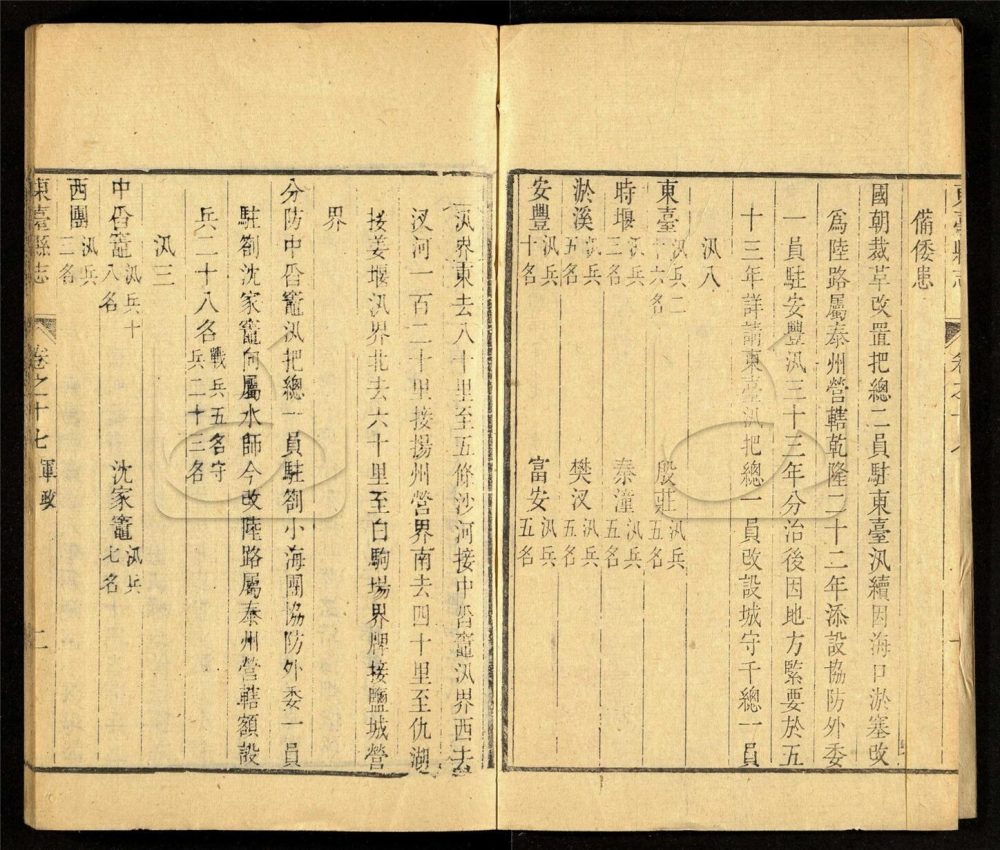 備倭患
國朝裁革改置把總二員駐東臺汛續因海口淤塞改
爲陸路屬泰州營轄乾隆二十二年添設協防外委
一員駐安豐汛三十三年分治後因地方緊要於五
十三年詳請東臺汛把總一員改設城守千總一員
汛八
東臺汛兵二十六名 殷莊汛兵五名
時堰汛兵三名 秦潼汛兵五名
淤溪汛兵五名 樊汊汛兵五名
安豐汛兵十名 富安汛兵五名
汛界東去八十里至五條沙河接中㫪竈汛界西去
汊河一百二十里接揚州營界南去四十里至仇湖
接姜堰汛界北去六十里至白駒場界牌接鹽城營
界
分防中㫪竈汛把總一員駐劄小海團協防外委一員
駐劄沈家竈向屬水師今改陸路屬泰州營轄額設
兵二十八名戰兵五名守兵二十三名
汛三
中㫪竈汛兵十八名 沈家竈汛兵七名
西團汛兵二名
東臺縣志 卷之十七 軍政 二